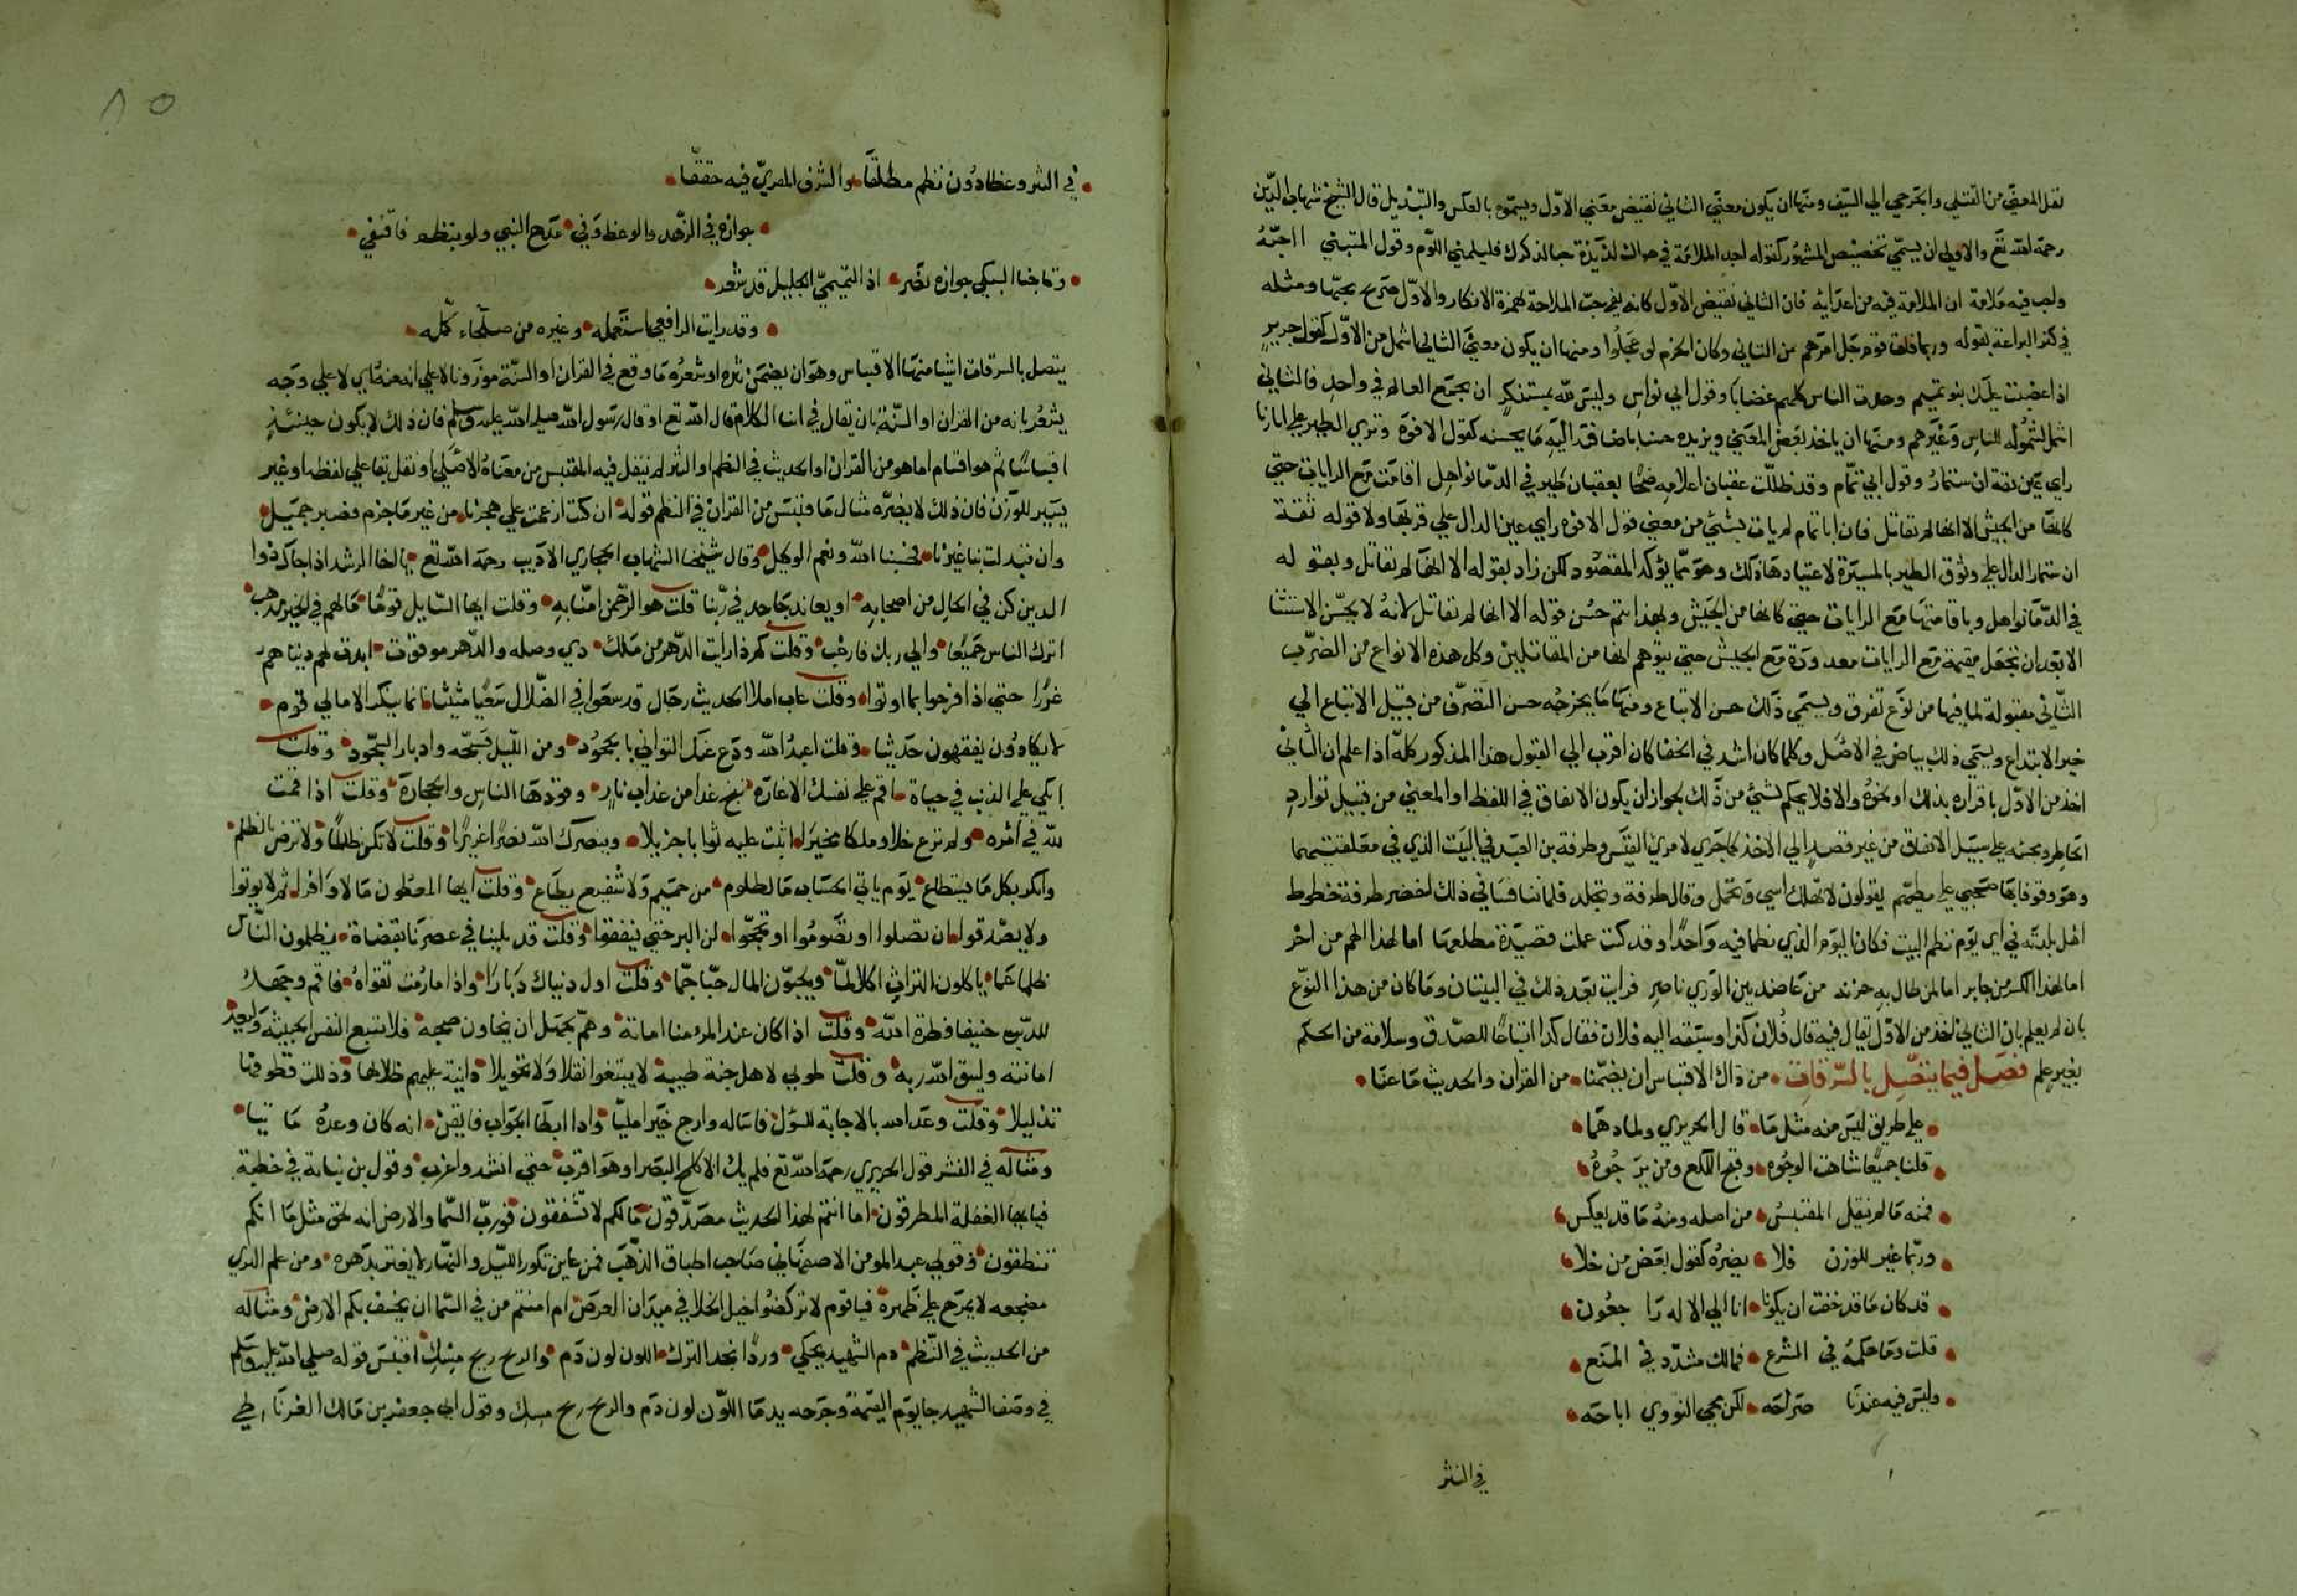 نقل المعنى من القتلى والجرحي الي السيف ومنها ان يكون معني الثاني نقيض معني الاول ويسموه بالعكس والتبديل قال الشيخ شهاب الدين
رحمه الله تع والاولي ان يسمي تخصيص المشهور كقوله اجد الملامة في هواك لذيذة حبا لذكرك فليلمني اللوم وقول المتبني ااحبه
واحب فيه ملامة ان الملامة فيه من اعدايه فان الثاني نقيض الاول كانه نفي حب الملامة لهمزة الانكار والاول صرح بحبها ومثله
في كنز البراعة بقوله وربما فات قوم جل امرهم من التاني وكان الحزم لو عجلوا ومنها ان يكون معني الثاني اشمل من الاول كقول جرير
اذا غضبت عليك بنو تميم وجدت الناس كلهم غضابا وقول ابي نواس وليس لله بمستنكر ان يجمع العالم في واحد فالثاني
اشمل لشموله للناس وغيرهم ومنها ان ياخذ بعض المعني ويزيده حسنا باضافة اليه ما يحسنه كقول الافوه وتري الطير علي اثارنا
راي عين ثقة ان ستمار وقول ابي تمام وقد ظللت عقبان اعلامه ضحا بعقبان طير في الدما نواهل اقامت مع الرايات حتي
كانها من الجيش الا انها لم تقاتل فان ابا تمام لم يات بشئ من معني قول الافوه راي عين الدال علي قربها ولا قوله ثقة
ان ستمار الدال علي وثوق الطير بالمسيرة لاعتيادها ذلك وهو مما يؤكد المقصود لكن زاد بقوله الا انها لم تقاتل وبقوله
في الدما نواهل وباقامتها مع الرايات حتي كانها من الجيش وبهذا يتم حسن قوله الا انها لم تقاتل لانه لا يحسن الاستثنا
الا بعد ان تجعل مقيمة مع الرايات معدودة مع الجيش حتي يتوهم انها من المقاتلين وكل هذه الانواع من الضرب
الثاني مقبولة لما فيها من نوع تفرق ويسمي ذلك حسن الاتباع ومنها ما يخرجه حسن التصرف من قبيل الاتباع الي
خير الابتداع ويسمي ذلك بياض في الاصل وكلما كان اشد في الخفا كان اقرب الي القبول هذا المذكور كله اذا علم ان الثاني
اخذ من الاول باقراره بذلك او نحوه والا فلا يحكم بشئ من ذلك لجواز ان يكون الاتفاق في اللفظ او المعني من قبيل توارد
الخاطر ومجيئه علي سبيل الاتفاق من غير قصد الي الاخذ كما جري لامرئ القيس وطرفة بن العبد في البيت الذي في معلقتيهما
وهو وقوفا بها صحبي علي مطيهم يقولون لا تهلك اسي وتحمل وقال طرفة وتجلد فلما تنافسا في ذلك احضر طرفة خطوط
اهل بلدته في اي يوم نظم البيت فكان اليوم الذي نظما فيه واحدا وقد كنت عملت قصيدة مطلعها اما لهذا الهم من اخر
اما لهذا الكسر من جابر اما لمن طال به حزنه من عاضد بين الوري ناصر فرايت بعد ذلك في البيتان وما كان من هذا النوع
بان لم يعلم بان الثاني اخذ من الاول يقال فيه قال فلان كذا وسبقه اليه فلان فقال كذا اتباعا للصدق وسلامة من الحكم
بغير علم فصل فيما يتصل بالسرقات • من ذاك الاقتباس ان يضمنا • من القران والحديث ما عنا •
• علي طريق ليس منه مثل ما • قال الحريري ولما دهما •
• قلنا جميعا شاهت الوجوه • وقبح اللكع ومن يرجوه •
• فمنه ما لم ينقل المقتبس • من اصله ومنه ما قد يعكس •
• وربما غير للوزن فلا • يضره كقول بعض من خلا •
• قد كان ما قد خفت ان يكونا • انا الي الاله راجعون •
• قلت وما حكمه في الشرع • فمالك مشدد في المنع •
• وليس فيه عندنا صراحه • لكن يحيي النووي اباحه •
في النثر
٨٥
• في النثر وعظا دون نظم مطلقا • والشرف المقري فيه حققا •
• جوازه في الزهد والوعظ وفي • مدح النبي ولو بنظم فاقتفي •
• وتاجنا السبكي جوازه نصر • اذ التميمي الجليل قد شعر •
• وقد رايت الرافعي استعمله • وغيره من صلحاء كمله •
يتصل بالسرقات اشيا منها الاقتباس وهو ان يضمن نثره او شعره ما وقع في القران او السنة موزونا لا علي انه منه اي لا علي وجه
يشعر بانه من القران او السنة بان يقال في اثنا الكلام قال الله تع او قال رسول الله صلي الله عليه وسلم فان ذلك لا يكون حينئذ
اقتباسا ثم هو اقسام اما هو من القران او الحديث في النظم او النثر لم ينقل فيه المقتبس من معناه الاصلي او نقل بقا علي لفظه او غير
يسير للوزن فان ذلك لا يضره مثال ما قتبس من القران في النظم قوله • ان كنت ازمعت علي هجرنا • من غير ما جرم فصبر جميل •
وان تبدلت بنا غيرنا • فحسبنا الله ونعم الوكيل • وقال شيخنا الشهاب الحجازي الاديب رحمه الله تع • يا اخا الرشد اذا جاك ذوا
الدين كن في الحال من اصحابه • او يعاند جاحد في ربنا قلت هو الرحمن امنا به • وقلت ايها السايل قوما • ما لهم في الخير مذهب •
اترك الناس جميعا • والي ربك فارغب • وقلت كم ذا رايت الدهر من ملك • دي وصله والدهر موقوت • ابدت لهم دنياهم
غررا حتي اذا فرحوا بما اوتوا • وقلت عاب املا الحديث رجال قد سعوا في الضلال سعيا مثيثا • انما ينكر الامالي قوم •
لا يكادون يفقهون حديثا • وقلت اعبد الله ودع عنك التواني بالهجود • ومن الليل فسبحه وادبار السجود • وقلت
ابكي علي الذنب في حياة • اقم علي نفسك الاغاره • تنج غدا من عذاب نار • وقودها الناس والحجارة • وقلت اذا قمت
لله في امره • ولم ترع خلا وملكا خيرا • اثبت عليه ثوابا جزيلا • وينصرك الله نصرا عزيزا • وقلت لا تكن ظالما • ولا ترض بالظلم •
وانكر بكل ما يستطاع • يوم ياتي الحساب ما لظلوم • من حميم ولا شفيع يطاع • وقلت ايها المعطون مالا وافرا • ثم لا يوتوا
ولا يصدقوا • ان تصلوا او تصوموا او تحجوا • لن البر حتي تنفقوا • وقلت قد بلينا في عصرنا بقضاة • يظلمون الناس
ظلما عما • ياكلون التراث اكلا لما • ويحبون المال حبا جما • وقلت اول دنياك دبارا • واذا ما رمت تقواه • فاقم وجهك
للدين حنيفا فطرة الله • وقلت اذا كان عند المرء منا امانة • وهم بجهل ان يخاون صحبه • فلا يتبع النفس الخبيثة وليعد •
امانته وليتق الله ربه • وقلت طوبي لاهل جنة طيبة • لا يبتغوا نقلا ولا تحويلا • دانية عليهم ظلالها • وذللت قطوفها
تذليلا • وقلت وعد الله بالاجابة للسؤل • فاساله وارج خيرا مليا • واذا ابطا الجواب فايقن • انه كان وعده ماتيا •
ومثاله في النثر قول الحريري رحمه الله تع فلم يك الا كلمح البصر او هو اقرب • حتي انشد واغرب • وقول بن نباتة في خطبة
فيا ايها الغفلة المطرقون • اما انتم لهذا الحديث مصدقون • مالكم لا تشفقون • فورب السما والارض انه لحق مثل ما انكم
تنطقون • وقول عبد المومن الاصفهاني صاحب اطباق الذهب فمن عاين تكور الليل والنهار لا يغتر بدهره • ومن علم الذي
مضجعه لا يمرح علي ظهره • فيا قوم لا تركضوا خيل الخلا في ميدان العرض ام امنتم من في السما ان يخسف بكم الارض • ومثاله
من الحديث في النظم • دم الشهيد يحكي • وردا بخد الترك • اللون لون دم • والريح ريح مسك • اقتبس قوله صلي الله عليه وسلم
في وصف الشهيد جا يوم القيمة وجرحه يدما اللون لون دم والريح ريح مسك وقول ابي جعفر بن مالك الغرناطي